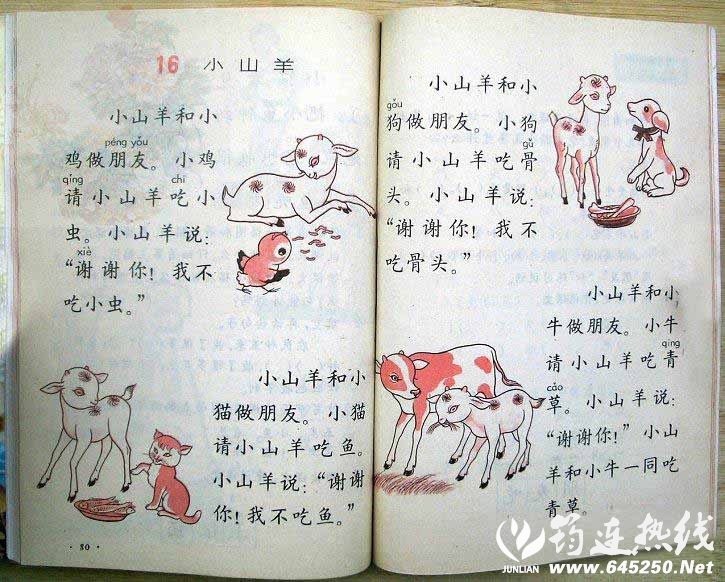 16 小山羊
小山羊和小
péng yǒu
鸡做朋友。小鸡
qǐng chī
请小山羊吃小
虫。小山羊说：
xiè
“谢谢你！我不
吃小虫。”
小山羊和小
猫做朋友。小猫
请小山羊吃鱼。
小山羊说：“谢谢
你！我不吃鱼。”
·80·
小山羊和小
gǒu
狗做朋友。小狗
gǔ
请小山羊吃骨
头。小山羊说：
“谢谢你！我不
吃骨头。”
小山羊和小
牛做朋友。小牛
qīng
请小山羊吃青
cǎo
草。小山羊说：
“谢谢你！”小山
羊和小牛一同吃
青草。
筠连热线
JUNLIAN www.645250.Net